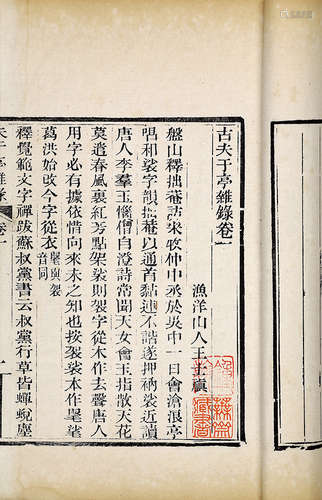 古夫于亭雜錄卷一
漁洋山人王士禛
盤山釋拙菴訪宋牧仲中丞於吳中一日會滄浪亭
唱和裟字韻拙菴以通首黏連不諧遂押衲裟近讀
唐人李羣玉惱僧自澄詩常聞天女會玉指散天花
莫遣春風裏紅芳點架裟則袈字從木作去聲唐人
用字必有據依惜向來未之知也按袈裟本作毠㲚
葛洪始改今字從衣毠與袈音同
釋覺範文字禪跋蘇叔黨書云叔黨行草皆蟬蛻塵
夫于亭雜錄 卷一